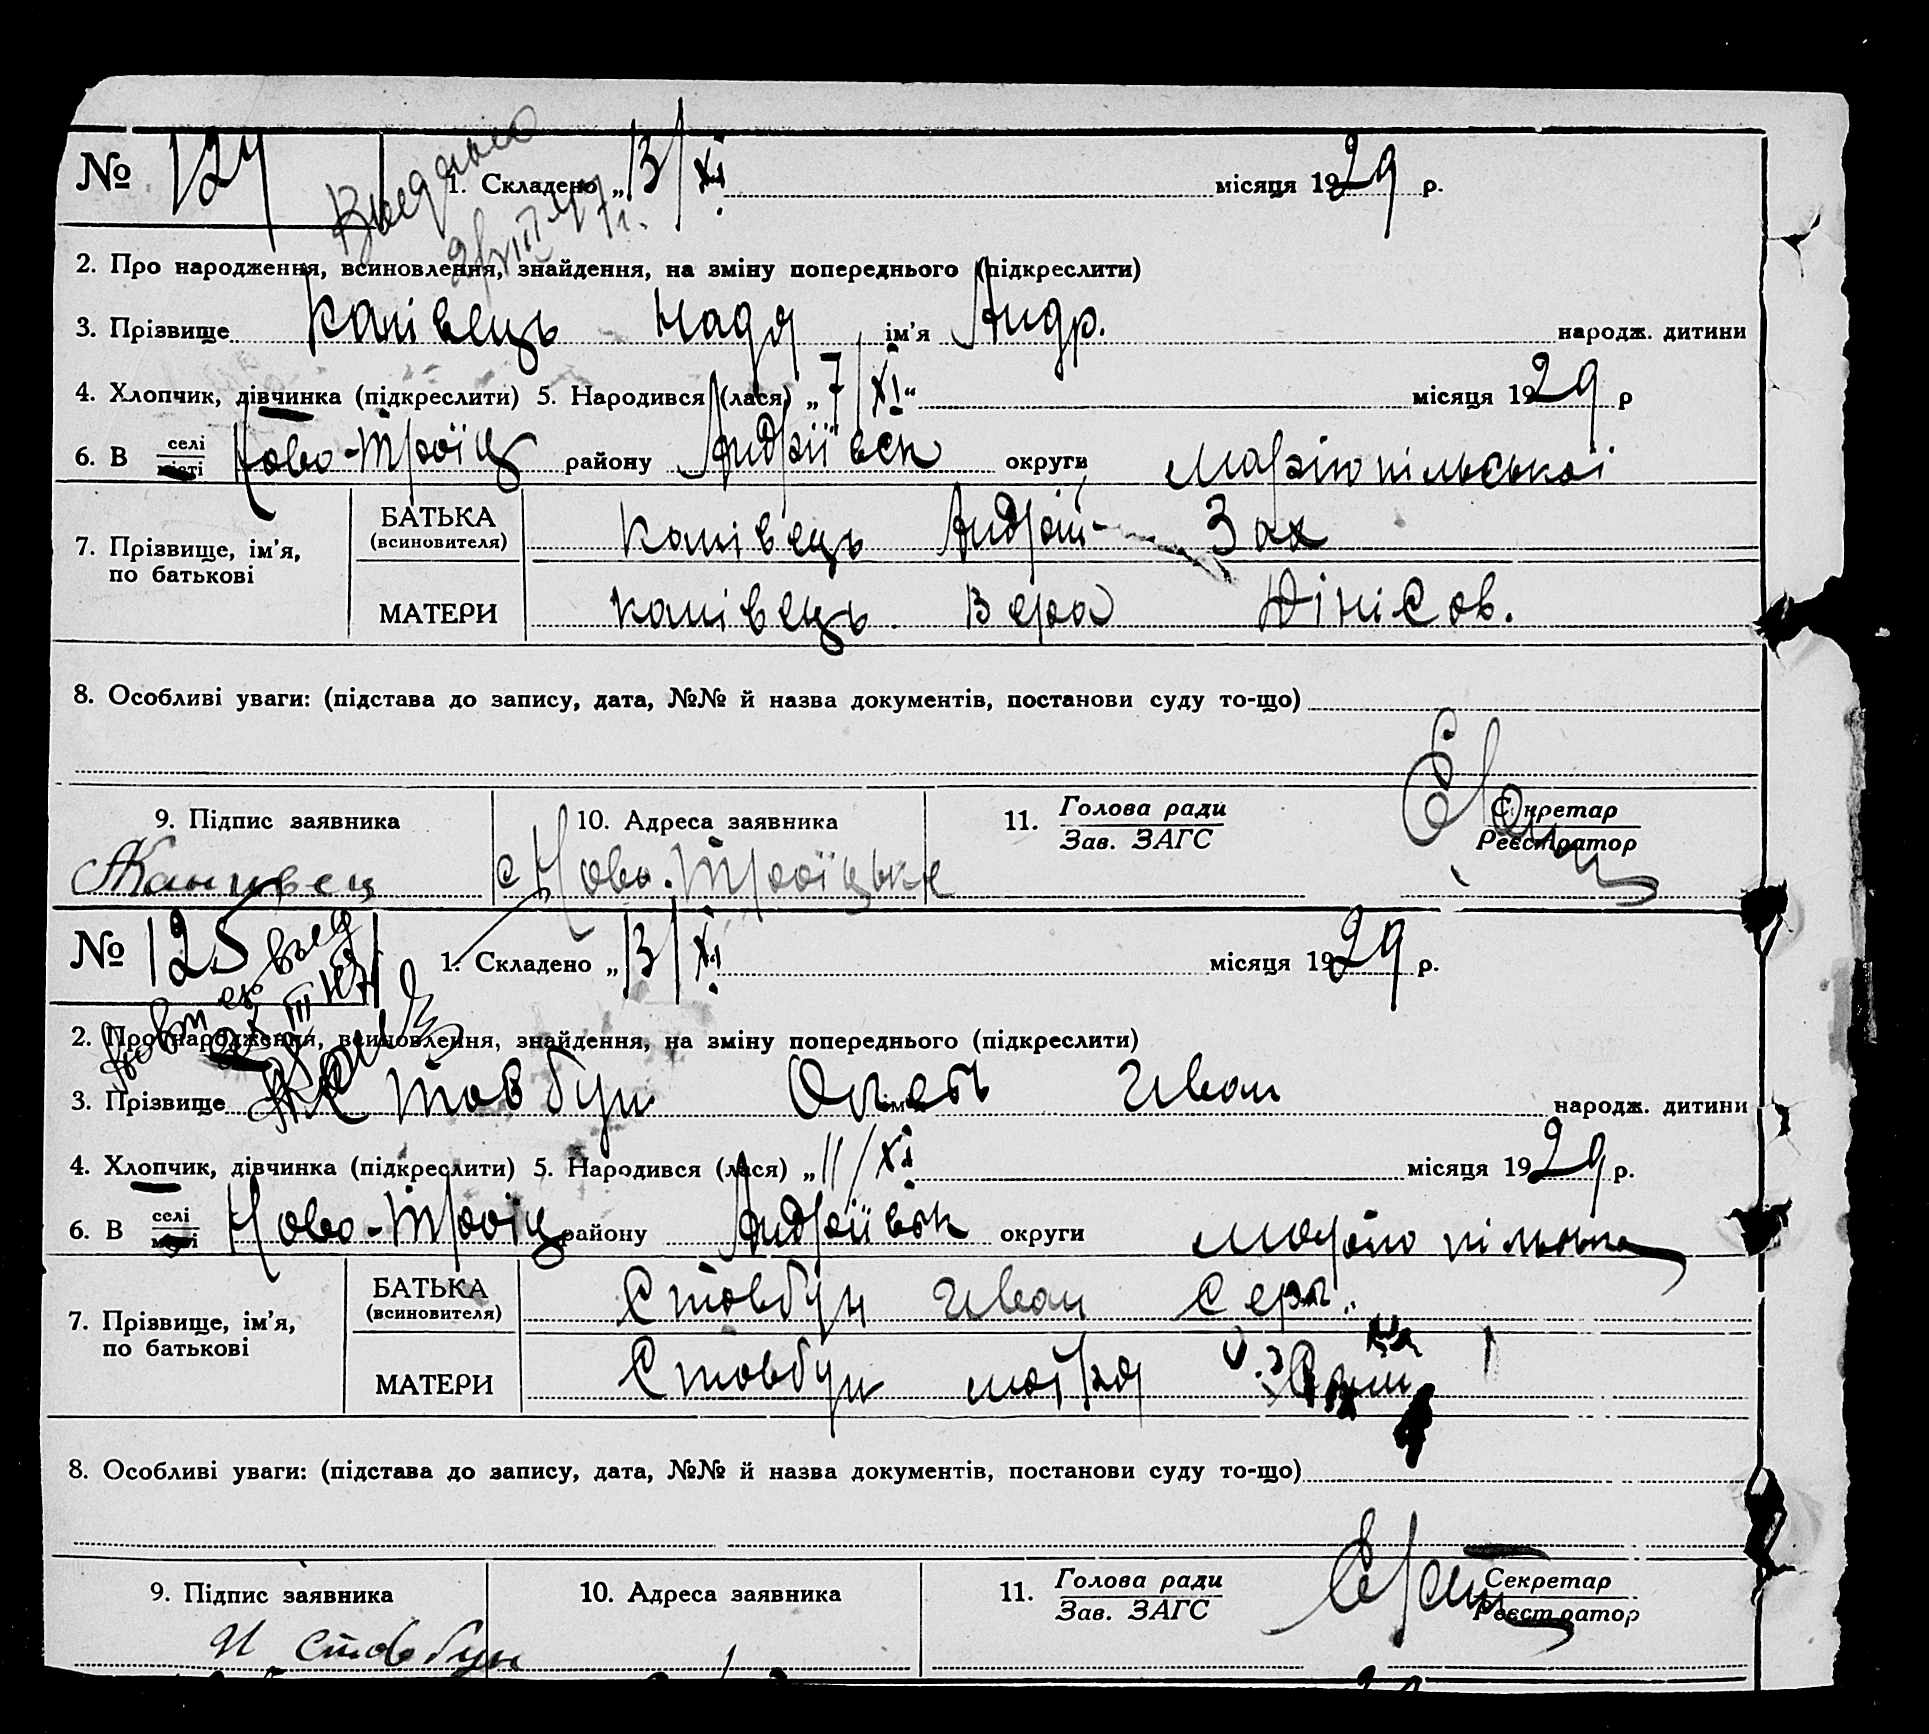 № 124 1. Складено „13/XI місяця 1929 р.
2. Про народження, всиновлення, знайдення, на зміну попереднього (підкреслити)
3. Прізвище Канівець Надя ім'я Андр. народж. дитини
4. Хлопчик, дівчинка (підкреслити) 5. Народився (лася) „7/XI“ місяця 1929 р
6. В селі місті Ново-Троїц району Андріївськ округи Маріюпільської
7. Прізвище, ім'я, по батькові
БАТЬКА (всиновителя) Канівець Андрій Зах
МАТЕРИ Канівець Вера Дінісов.
8. Особливі уваги: (підстава до запису, дата, №№ й назва документів, постанови суду то-що)
9. Підпис заявника 10. Адреса заявника 11. Голова ради Секретар
Зав. ЗАГС Реєстратор
Канивец с Ново-Троїцьке
№ 125 1. Складено „13/XI місяця 1929 р.
2. Про народження, всиновлення, знайдення, на зміну попереднього (підкреслити)
3. Прізвище Стовбун Олегь Иван народж. дитини
4. Хлопчик, дівчинка (підкреслити) 5. Народився (лася) „11/XI місяця 1929 р.
6. В селі місті Ново-Троїц району Андріївськ округи
7. Прізвище, ім'я, по батькові
БАТЬКА (всиновителя) Стовбун Иван Серг.
МАТЕРИ Стовбун
8. Особливі уваги: (підстава до запису, дата, №№ й назва документів, постанови суду то-що)
9. Підпис заявника 10. Адреса заявника 11. Голова ради Секретар
Зав. ЗАГС Реєстратор
И Стовбун